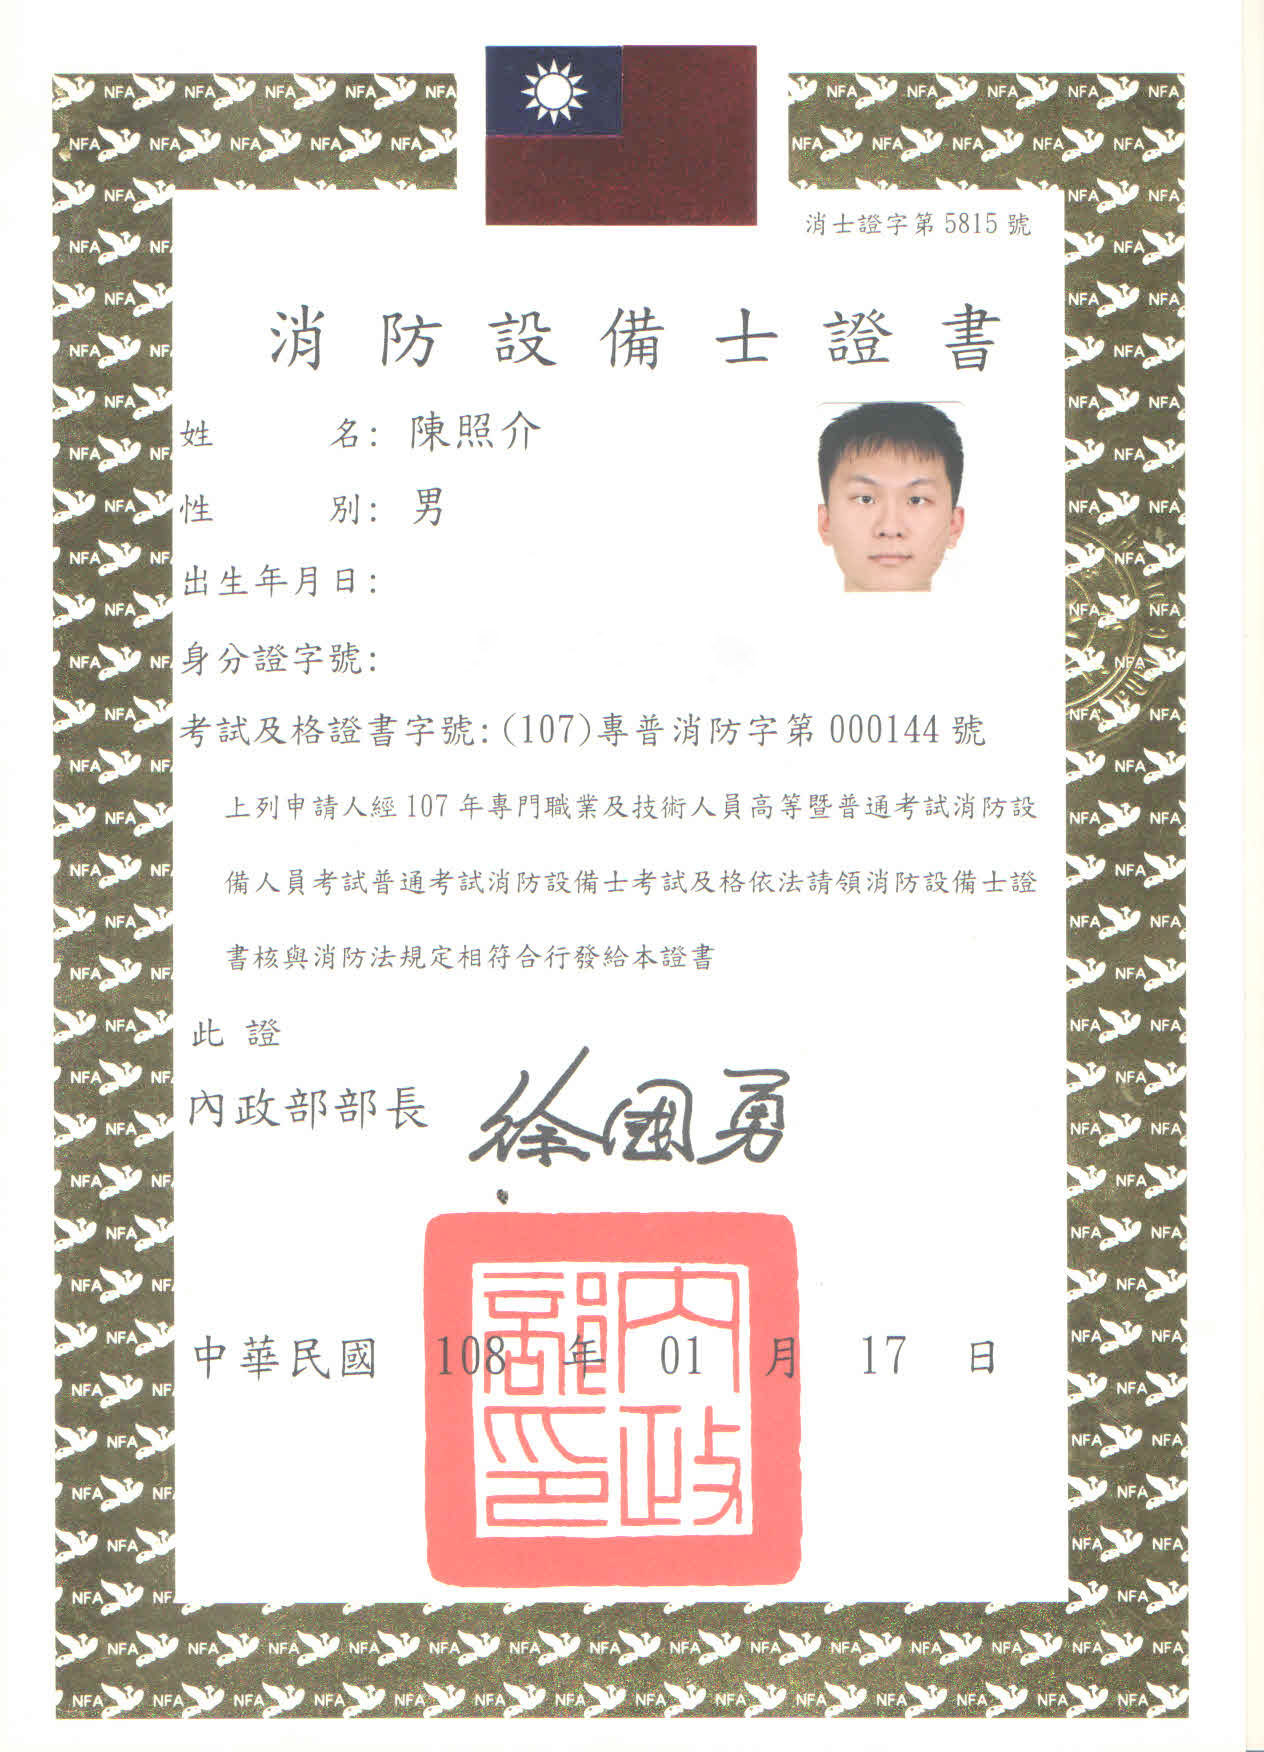 消士證字第 5815 號
消防設備士證書
姓名: 陳照介
性別: 男
出生年月日:
身分證字號:
考試及格證書字號: (107)專普消防字第 000144 號
上列申請人經 107 年專門職業及技術人員高等暨普通考試消防設
備人員考試普通考試消防設備士考試及格依法請領消防設備士證
書核與消防法規定相符合行發給本證書
此證
內政部部長 徐國勇
中華民國 108 年 01 月 17 日
內政部印
NFA